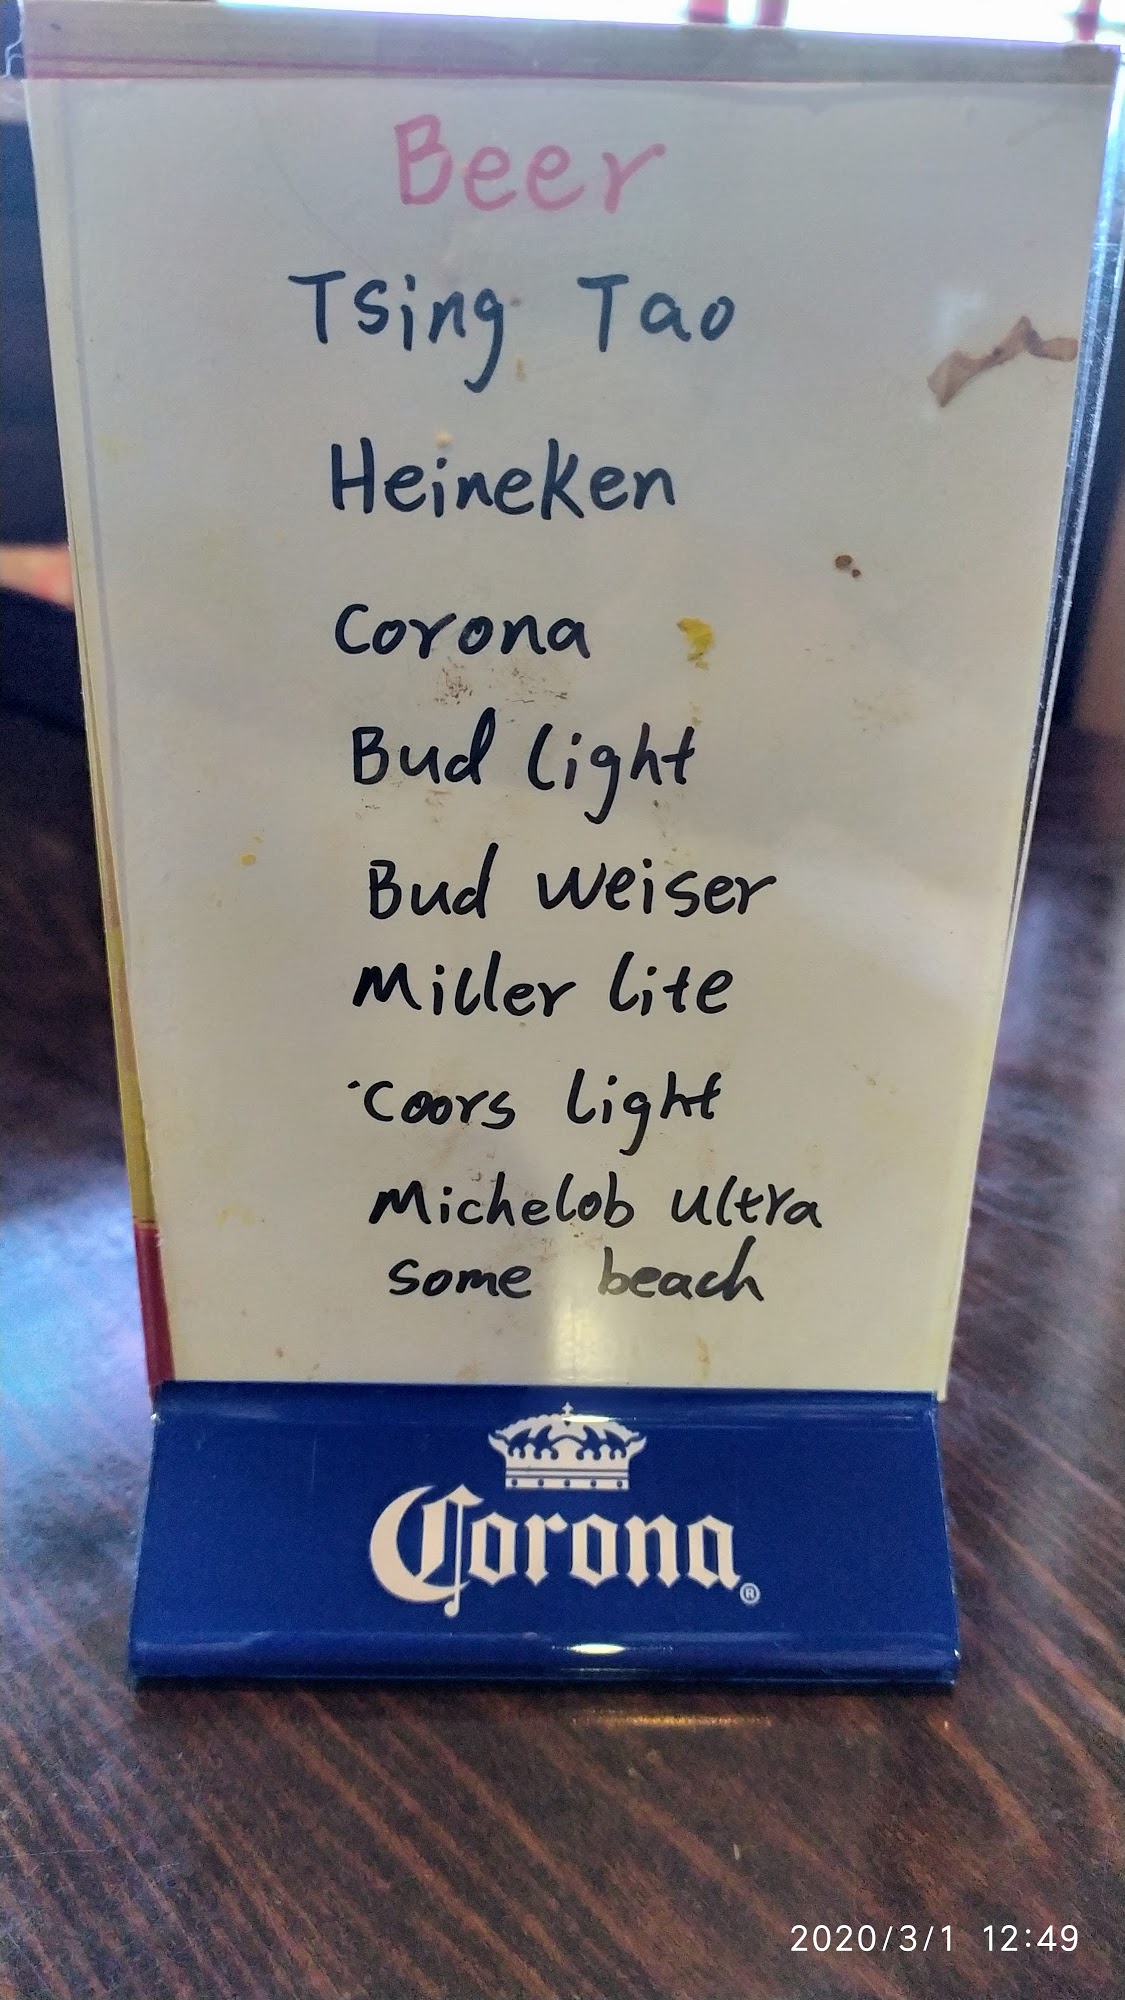 Beer
Tsing Tao
Heineken
Corona
Bud light
Bud weiser
Miller lite
Coors light
Michelob ultra
some beach
Corona®
2020/3/1 12:49